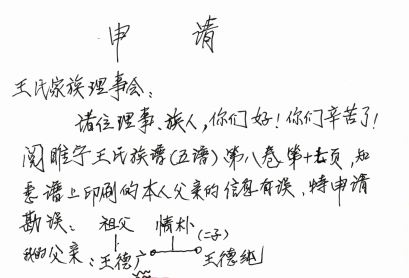 申 请
王氏家族理事会:
诸位理事、族人,你们好!你们辛苦了!
阅睢宁王氏族谱(五谱)第八卷第十七页,知
悉谱上印刷的本人父亲的信息有误,特申请
勘误:祖父 情朴(二子)
我的父亲:王德广 王德继